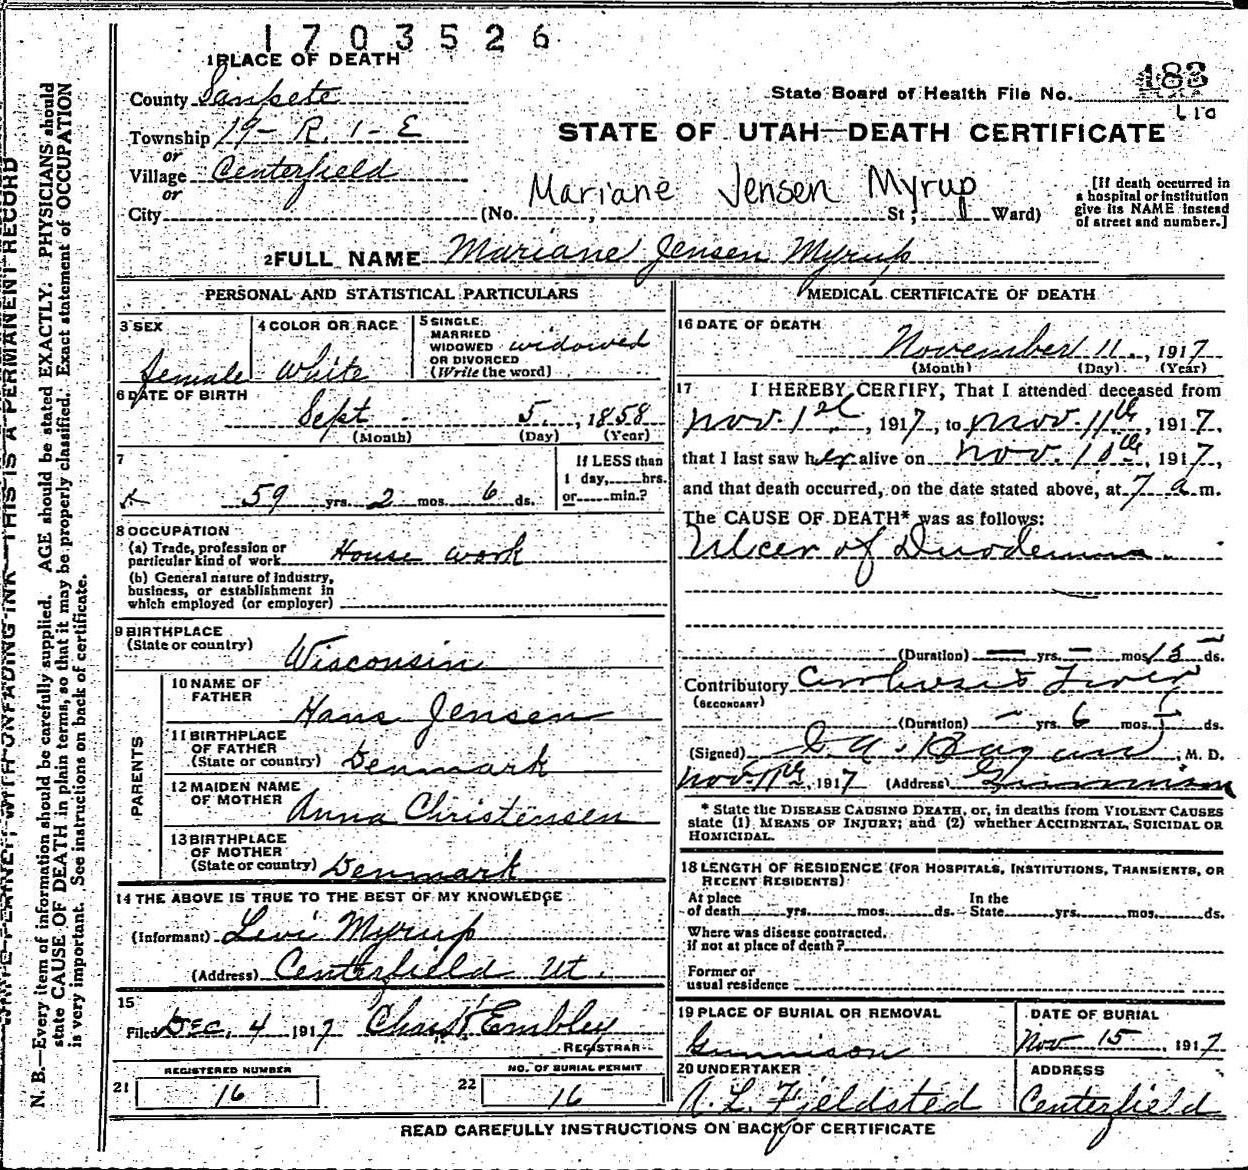 1703526
1 PLACE OF DEATH
County Sanpete
Township 19- R. 1- E
or
Village Centerfield
or
City
State Board of Health File No. 483
STATE OF UTAH—DEATH CERTIFICATE
Mariane Jensen Myrup
(No. , St; Ward)
[If death occurred in
a hospital or institution
give its NAME instead
of street and number.]
2 FULL NAME Mariane Jensen Myrup
PERSONAL AND STATISTICAL PARTICULARS
3 SEX
female
4 COLOR OR RACE
White
5 SINGLE
MARRIED
WIDOWED
OR DIVORCED
(Write the word)
widowed
6 DATE OF BIRTH
Sept 5, 1858
(Month) (Day) (Year)
7
59 yrs. 2 mos. 6 ds.
If LESS than
1 day, hrs.
or min.?
8 OCCUPATION
(a) Trade, profession or
particular kind of work House work
(b) General nature of industry,
business, or establishment in
which employed (or employer)
9 BIRTHPLACE
(State or country)
Wisconsin
PARENTS
10 NAME OF
FATHER
Hans Jensen
11 BIRTHPLACE
OF FATHER
(State or country) Denmark
12 MAIDEN NAME
OF MOTHER
Anna Christensen
13 BIRTHPLACE
OF MOTHER
(State or country) Denmark
14 THE ABOVE IS TRUE TO THE BEST OF MY KNOWLEDGE
(Informant) Levi Myrup
(Address) Centerfield Ut.
15
Filed Dec. 4 1917 Chris K Embley
REGISTRAR
21
REGISTERED NUMBER
16
22
NO. OF BURIAL PERMIT
16
MEDICAL CERTIFICATE OF DEATH
16 DATE OF DEATH
November 11, 1917
(Month) (Day) (Year)
17 I HEREBY CERTIFY, That I attended deceased from
Nov. 1st, 1917, to Nov. 11th, 1917,
that I last saw her alive on Nov. 10th, 1917,
and that death occurred, on the date stated above, at 7 a m.
The CAUSE OF DEATH* was as follows:
Ulcer of Duodenum
(Duration) — yrs. — mos. 15 ds.
Contributory
(SECONDARY)
(Duration) — yrs. 6 mos. ds.
(Signed) , M. D.
Nov 11th, 1917 (Address) Gunnison
* State the DISEASE CAUSING DEATH, or, in deaths from VIOLENT CAUSES
state (1) MEANS OF INJURY; and (2) whether ACCIDENTAL, SUICIDAL OR
HOMICIDAL.
18 LENGTH OF RESIDENCE (FOR HOSPITALS, INSTITUTIONS, TRANSIENTS, OR
RECENT RESIDENTS)
At place
of death yrs. mos. ds.
In the
State yrs. mos. ds.
Where was disease contracted.
if not at place of death?
Former or
usual residence
19 PLACE OF BURIAL OR REMOVAL
Gunnison
DATE OF BURIAL
Nov 15, 1917
20 UNDERTAKER
A. L. Fjeldsted
ADDRESS
Centerfield
READ CAREFULLY INSTRUCTIONS ON BACK OF CERTIFICATE
WRITE PLAINLY WITH UNFADING INK—THIS IS A PERMANENT RECORD
N. B.—Every item of information should be carefully supplied. AGE should be stated EXACTLY. PHYSICIANS should
state CAUSE OF DEATH in plain terms, so that it may be properly classified. Exact statement of OCCUPATION
is very important. See instructions on back of certificate.